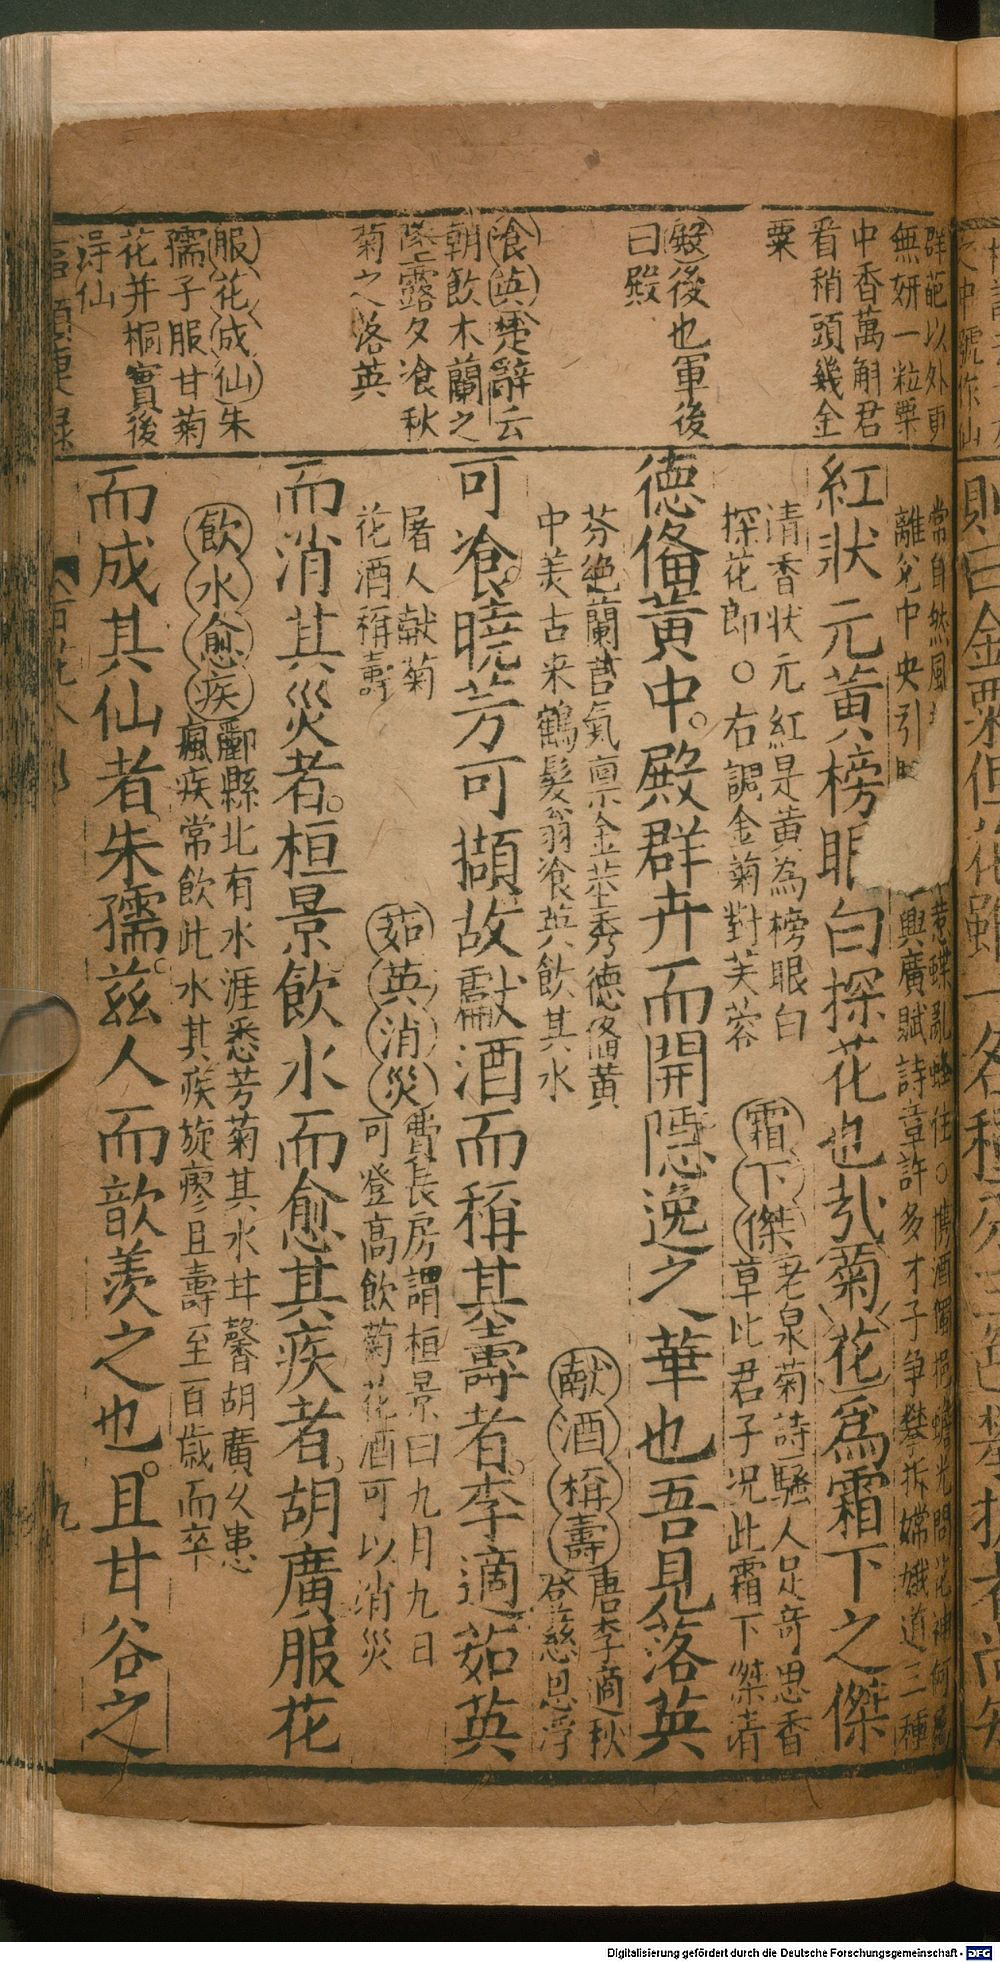 群葩以外更
無妍一粒粟
中香萬斛君
看稍頭幾金
粟
殿後也軍後
曰殿
飡英楚辭云
朝飲木蘭之
墜露夕飡秋
菊之落英
服花成仙朱
孺子服甘菊
花并桐實後
淂仙
常自然風
惹蝶亂蜂狂○携酒獨
問花神何
離兌中央引
興廣賦詩章許多才子争攀折嫦娥道三種
紅状元黃榜眼白探花也㢤菊花爲霜下之傑
清香状元紅是黃為榜眼白
探花郎○右調金菊對芙蓉
霜下傑老泉菊詩騷人足奇思香
草比君子况此霜下傑清
德俻黃中殿群卉而開隠逸之華也吾見落英
芬絶蘭茝氣禀金莖秀德俻黃
中美古来鶴髮翁飡英飲其水
献酒稱壽唐李適秋
登慈恩浮
可飡曉芳可擷故獻酒而稱其壽者李適茹英
屠人献菊
花酒稱壽
茹英消災費長房謂桓景曰九月九日
可登高飲菊花酒可以消災
而消其災者桓景飲水而愈其疾者胡廣服花
飲水愈疾酈縣北有水涯悉芳菊其水甘馨胡廣久患
瘋疾常飲此水其疾旋瘳且壽至百歳而卒
而成其仙者朱孺兹人而歆羨之也且甘谷之
九
Digitalisierung gefördert durch die Deutsche Forschungsgemeinschaft - DFG